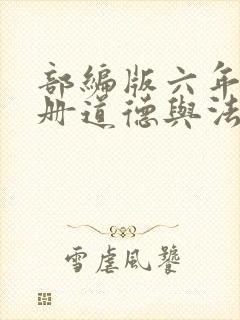 部編版六年
冊道德與法
雪虐風饕